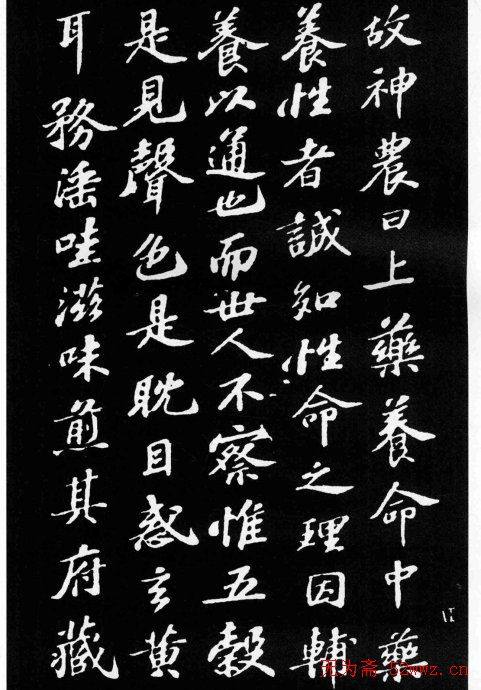 故神農曰上藥養命中藥
養性者誠知性命之理因輔
養以通也而世人不察惟五穀
是見聲色是耽目惑玄黃
耳務淫哇滋味煎其府藏
无为斋 52wwz.cn